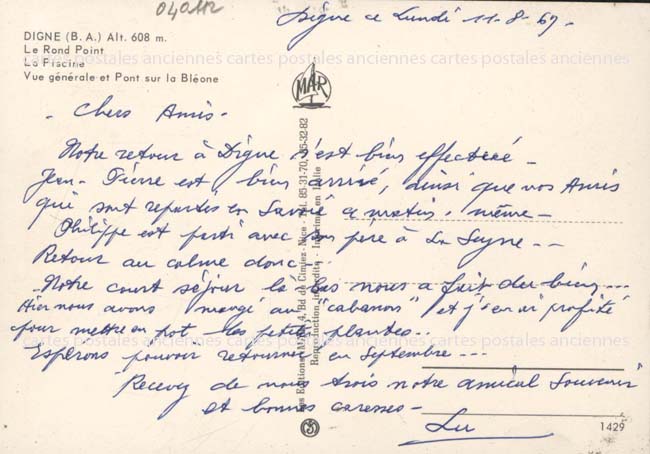 040112
Digne ce Lundi 11-8-69-
DIGNE (B. A.) Alt. 608 m.
Le Rond Point
La Piscine
Vue générale et Pont sur la Bléone
cartes postales anciennes cartes postales anciennes cartes postales anciennes
MAR
- Chers Amis -
Notre retour à Digne s'est bien effectué -
Jean-Pierre est bien arrivé, ainsi que vos Amis
qui sont repartis en Savoie ce matin même -
Philippe est parti avec son père à La Seyne --
Retour au calme donc..
- Notre court séjour là bas nous a fait du bien...
Hier nous avons mangé au "cabanon" et j'en ai profité
pour mettre en pot les petites plantes..
Espérons pouvoir retourner en Septembre ---
Recevez de nous trois notre amical Souvenir
et bonnes caresses -
Lu
Les Editions "MAR", 4, Bd de Cimiez - Nice - Tél. 85-31-70, 85-32-82
Reproduction interdite - Imprimé en Italie
1429